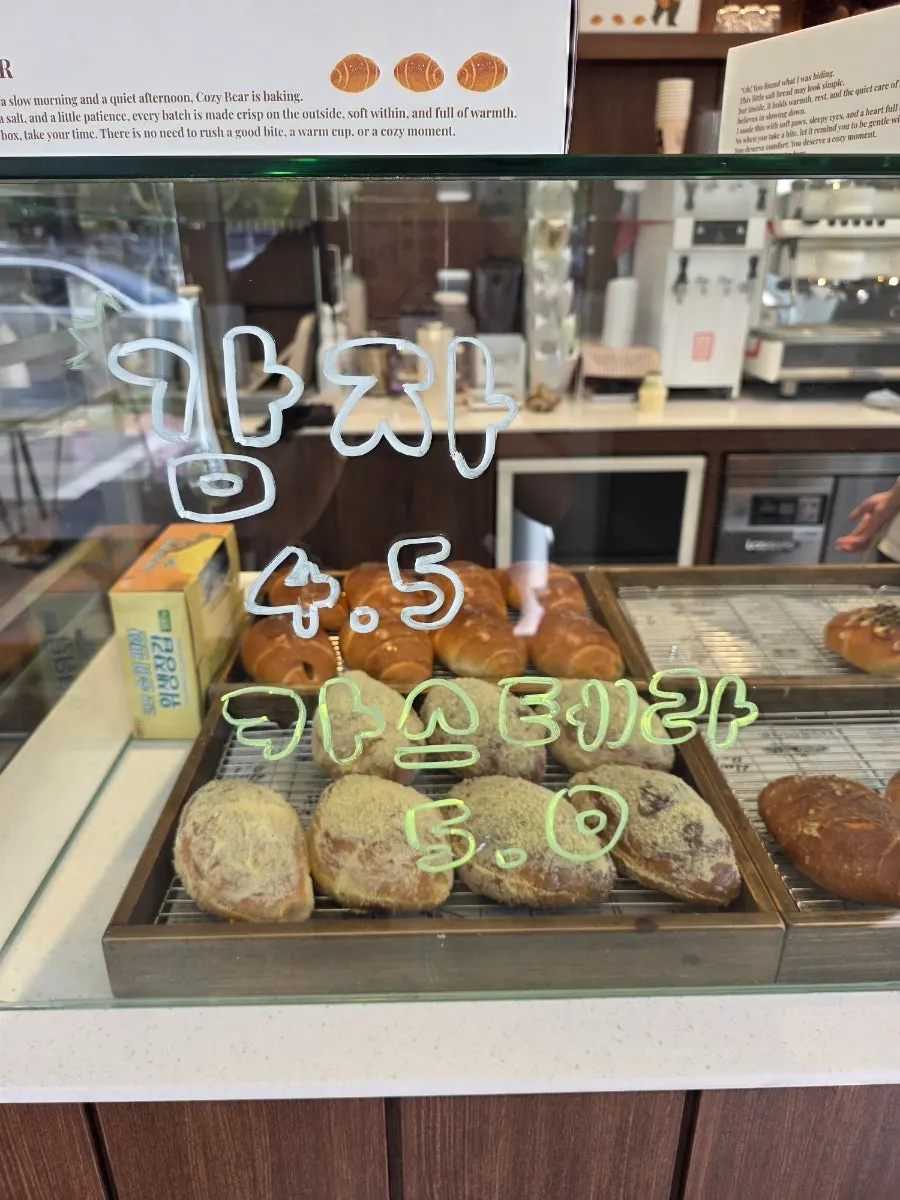 R
a slow morning and a quiet afternoon, Cozy Bear is baking.
a salt, and a little patience, every batch is made crisp on the outside, soft within, and full of warmth.
box, take your time. There is no need to rush a good bite, a warm cup, or a cozy moment.
"Oh! You found what I was hiding.
This little salt bread may look simple,
but inside, it holds warmth, rest, and the quiet care of
believes in slowing down.
I made this with soft paws, sleepy eyes, and a heart full
So when you take a bite, let it remind you to be gentle wi
You deserve comfort. You deserve a cozy moment.
감자
4.5
카스테라
5.0